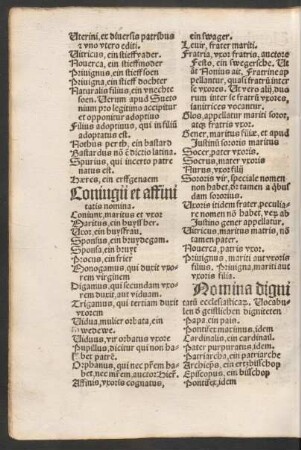 Uterini, ex diuersis patribus
z vno vtero editi.
Uitricus, ein stieffvader.
Nouerca, ein stieffmoder
Priuignus, ein stieff soen
Priuigna, ein stieff dochter
Naturalis filius, ein vnechte
soen. Uerum apud Sueto
nium pro legitimo accipitur
et opponitur adoptiuo
Filius adoptiuus, qui in filiū
adoptatus est.
Nothus perth, ein bastard
Bastardus nō ē dictio latina.
Spurius, qui incerto patre
natus est.
Hæres, ein erffgenaem
Coniugii et affini
tatis nomina.
Coniunx, maritus et vxor
Maritus, ein huyßher.
Uxor, ein huyßfrau,
Sponsus, ein bruydegam.
Sponsa, ein bruyt
Procus, ein frier
Monogamus, qui duxit vxo-
rem virginem
Digamus, qui secundam vxo-
rem duxit, aut viduam.
Trigamus, qui tertiam duxit
vxorem
Uidua, mulier orbata, ein
wedewe.
Uiduus, vir orbatus vxore
Pupillus, dicitur qui non ha-
bet patrē.
Orphanus, qui nec prēm ha-
bet, nec mrēm, auctor Hier.
Affinis, vxoris cognatus,
ein swager.
Leuir, frater mariti.
Fratria, vxor fratris, auctore
Festo, ein swegersche. Ut
ait Nonius air. Fratrine ap
pellantur, quasi fratrū inter
se vxores. Ut vero alij, duo
rum inter se fratrū vxores,
ianitrices vocantur.
Glos, appellatur mariti soror,
atqȝ fratris vxor.
Gener, maritus filiæ, et apud
Justinū sororis maritus
Socer, pater vxoris.
Socrus, mater vxoris
Nurus, vxor filij
Sororis vir, speciale nomen
non habet, dr tamen a qbusdā
sororius.
Uxoris itidem frater, peculia-
re nomen nō habet, veqȝ ab
Justino gener appellatur,
Uitricus, maritus matris, nō
tamen pater.
Nouerca, patris vxor.
Priuignus, mariti aut vxoris
filius, Priuigna, mariti aut
vxoris filia.
Nomina digni
tatū ecclesiasticaꝝ. Vocabu-
len d geistlichen digniteten
Papa, ein pais.
Pontifex maximus, idem
Cardinalis, ein cardinail.
Pater purpuratus, idem.
Patriarcha, ein patriarche
Archieps, ein ertzbisschop
Episcopus, ein bisschop
Pontifex, idem